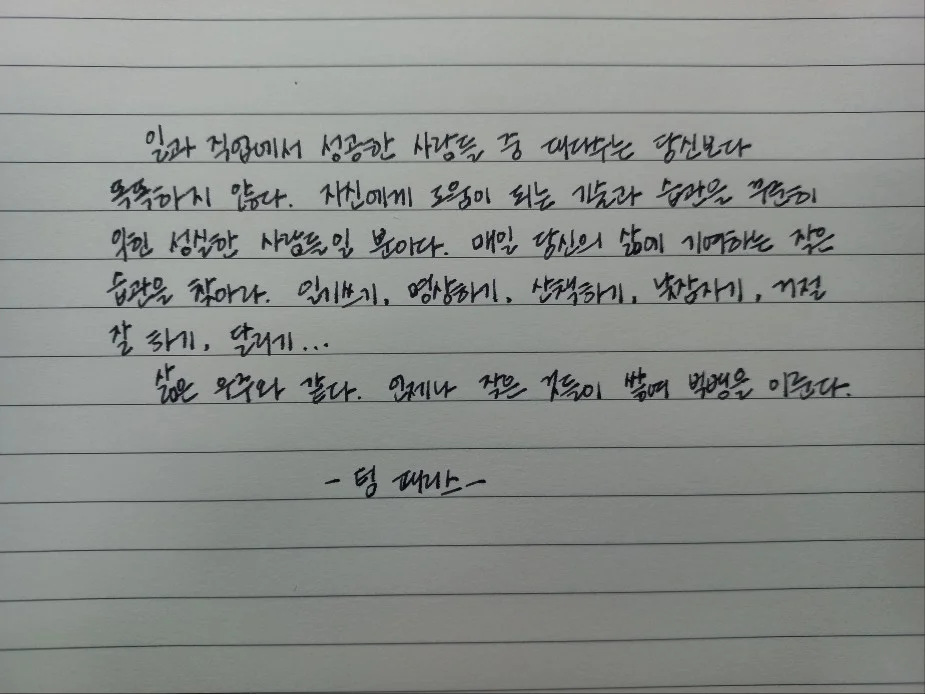 일과 직업에서 성공한 사람들 중 대다수는 당신보다
똑똑하지 않다. 자신에게 도움이 되는 기술과 습관을 꾸준히
익힌 성실한 사람들일 뿐이다. 매일 당신의 삶에 기여하는 작은
습관을 찾아라. 일기쓰기, 명상하기, 산책하기, 낮잠자기, 거절
잘 하기, 달리기...
삶은 우주와 같다. 언제나 작은 것들이 쌓여 빅뱅을 이룬다.
- 팀 페리스 -